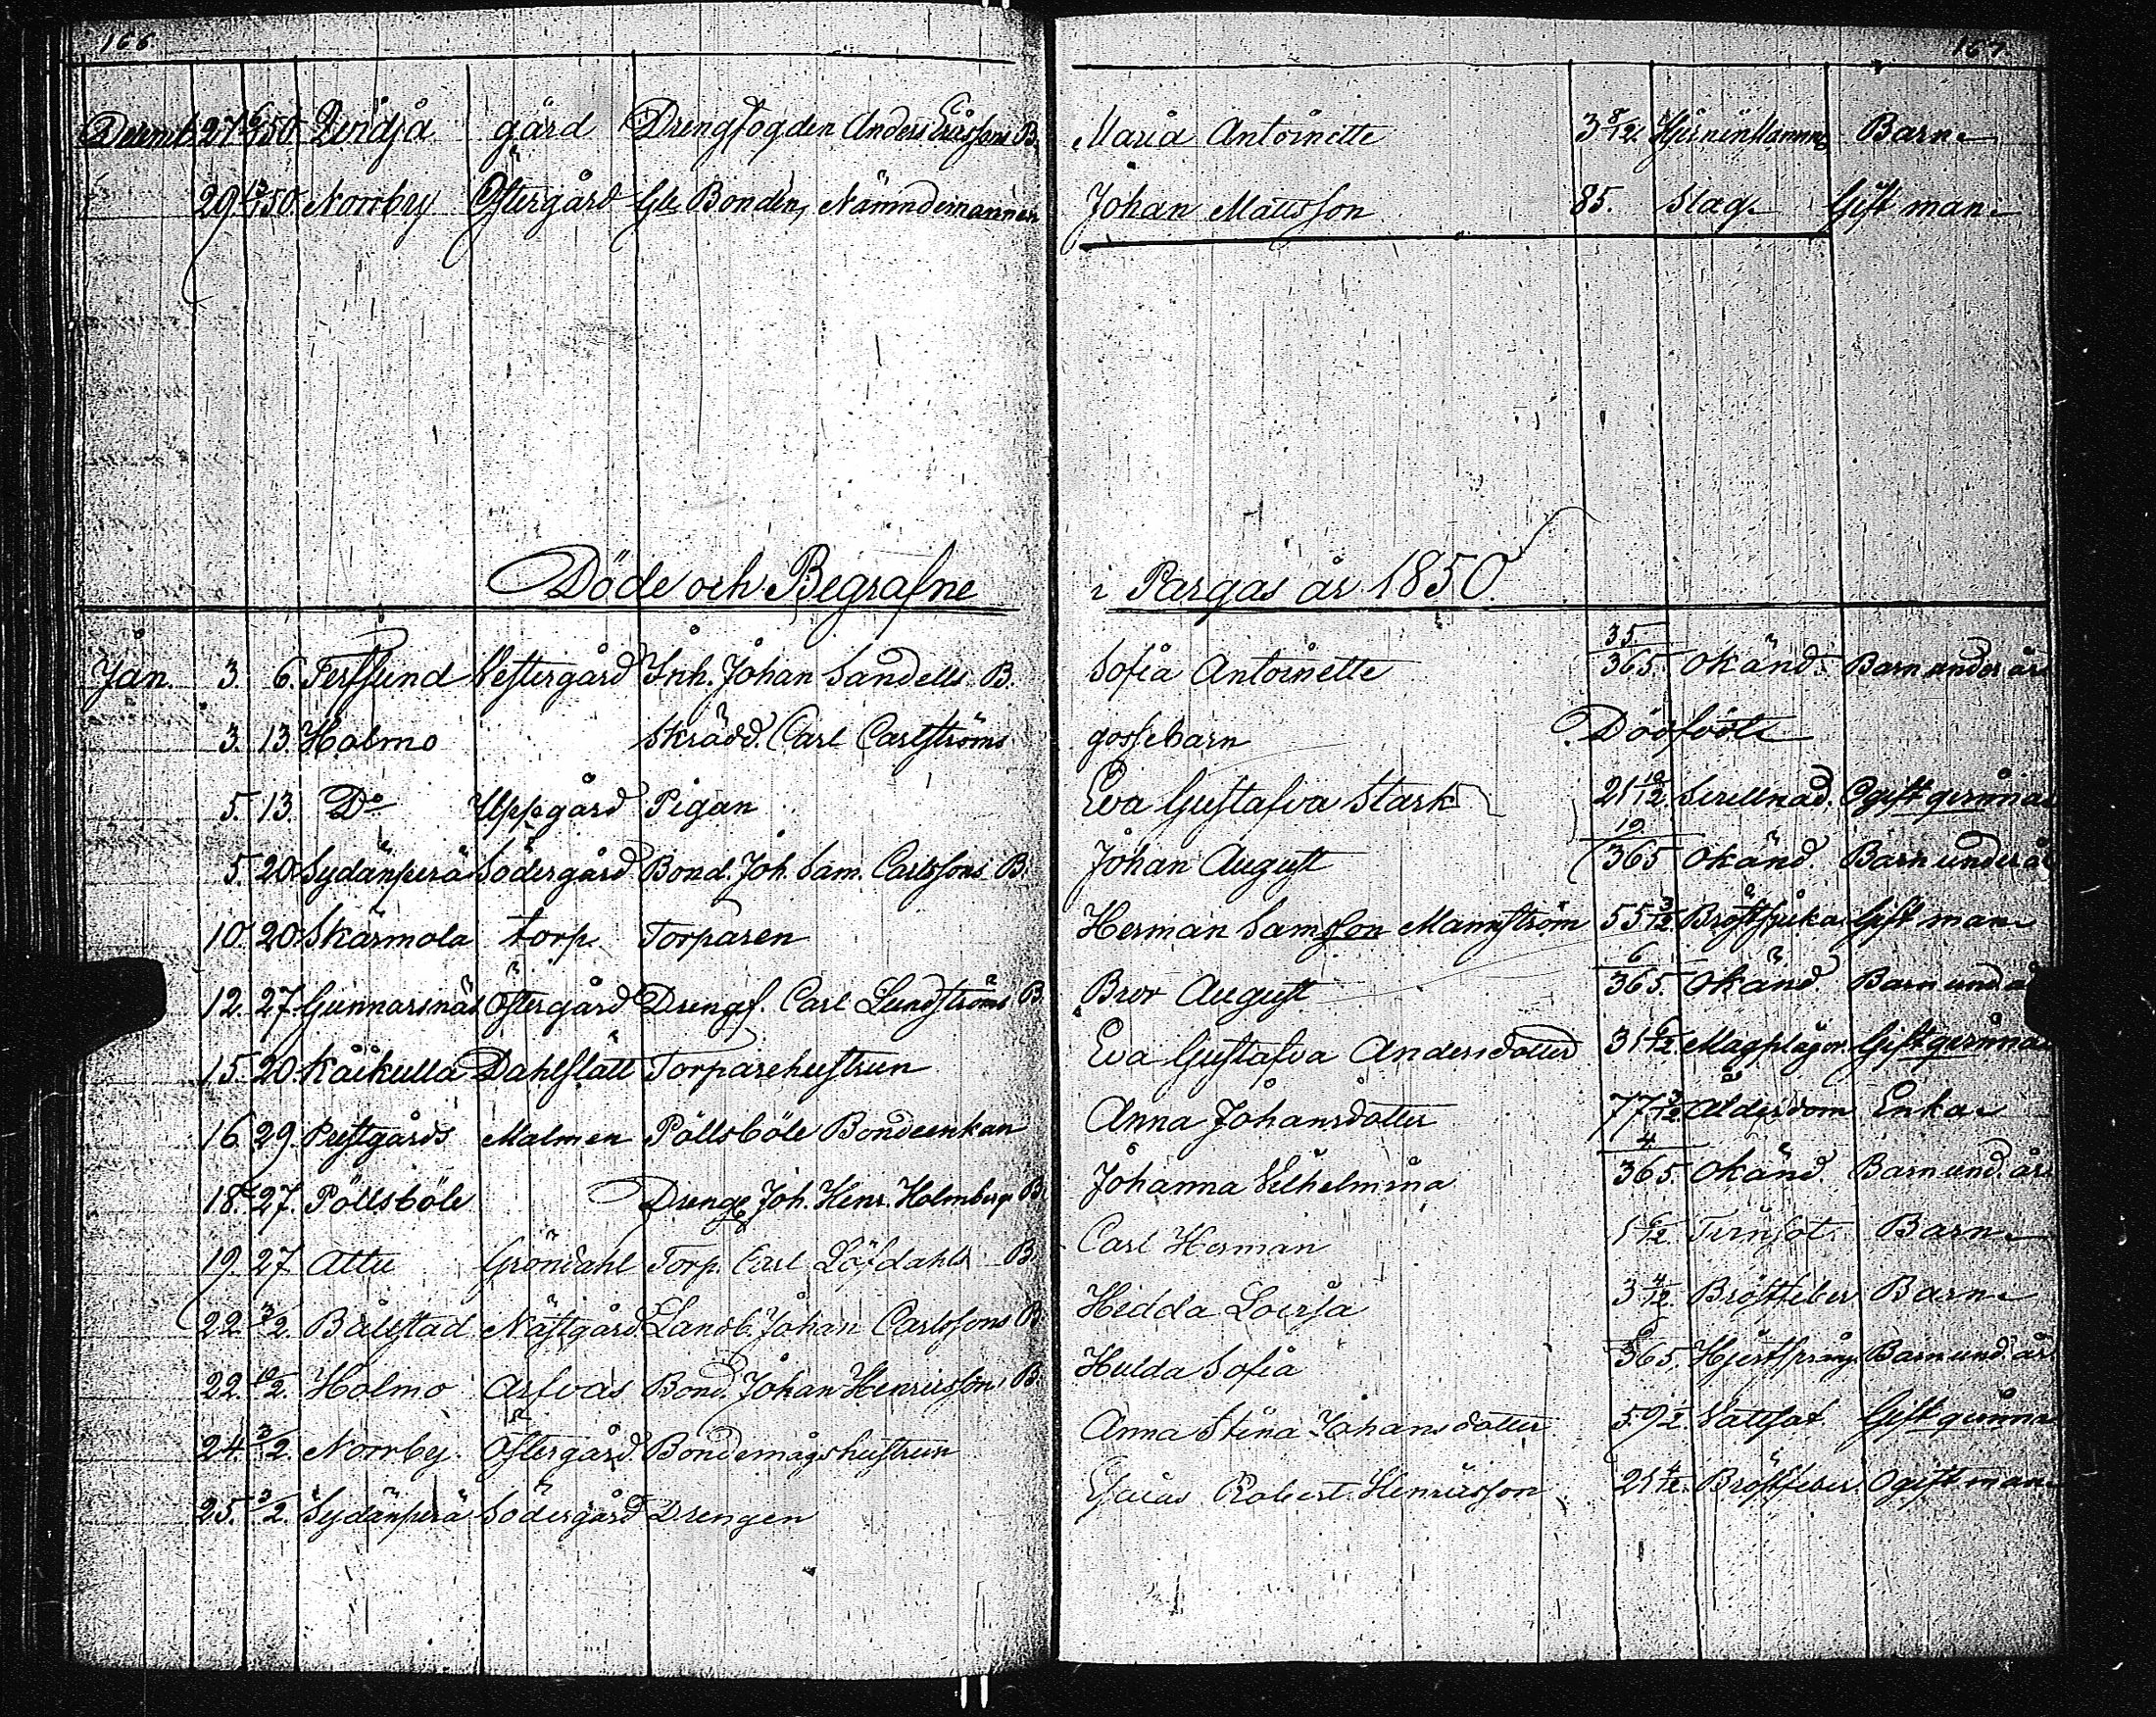 166. 167.
Decemb. 27 6/1 50 Qvidja gård Drengfogden Anders Ericssons B. Maria Antoinette 3 8/12. Barn
29 13/1 50 Norrby Östergård Gle Bonden, Nämndemannen Johan Mattsson 85. Slag Gift man
Döde och Begrafne i Pargas år 1850.
Jan. 3. 6. Vestergård Inh. Johan Sandells B. Sofia Antoinette 35/365. Okänd. Barn under år
3. 13. Holmo Skrädd. Carl Carlströms gossebarn Dödfödt
5. 13. Do Uppgård Pigan Eva Gustafva Stark 21 10/12. Ogift qvinna
5. 20. Sydänperä Södergård Bond. Joh. Sam. Carlssons B. Johan August 10/365 Okänd. Barn under år
10. 20. Skärmola torp. Torparen Herman Samsson Mannström 55 3/12. Bröstsjuka Gift man
12. 27. Gunnarsnäs Östergård Drengf. Carl Lundströms B. Bror August 6/365. Okänd Barn und. år
15. 20. Dahlslätt Torparehustrun Eva Gustafva Andersdotter 31 6/12. Magplågor. Gift qvinna
16. 29. Prestgårds Malmen Pöllsböle Bondeenkan Anna Johansdotter 77 3/12. Ålderdom Enka
18. 27. Pöllsböle Dreng. Joh. Henr. Holmbergs B. Johanna Vilhelmina 4/365. Okänd. Barn und. år
19. 27. Attu Gröndahl Torp. Carl Löfdahls B. Carl Herman 1 6/12. Tvinsot. Barn
22. 3/2. Bålstad Näsgård Landb. Johan Carlssons B. Hedda Lovisa 3 4/12. Bröstfeber Barn
22. 10/2. Holmo Arfvas Bond. Johan Henricssons B. Hulda Sofia 8/365. Hjertsprång. Barn und. år
24. 3/2. Norrby. Östergård. Bondemågshustrun Anna Stina Johansdotter 59 1/2. Vattsot. Gift qvinna
25. 3/2. Sydänperä Södergård Drengen Esaias Robert Henricsson 21 4/12. Bröstfeber. Ogift man